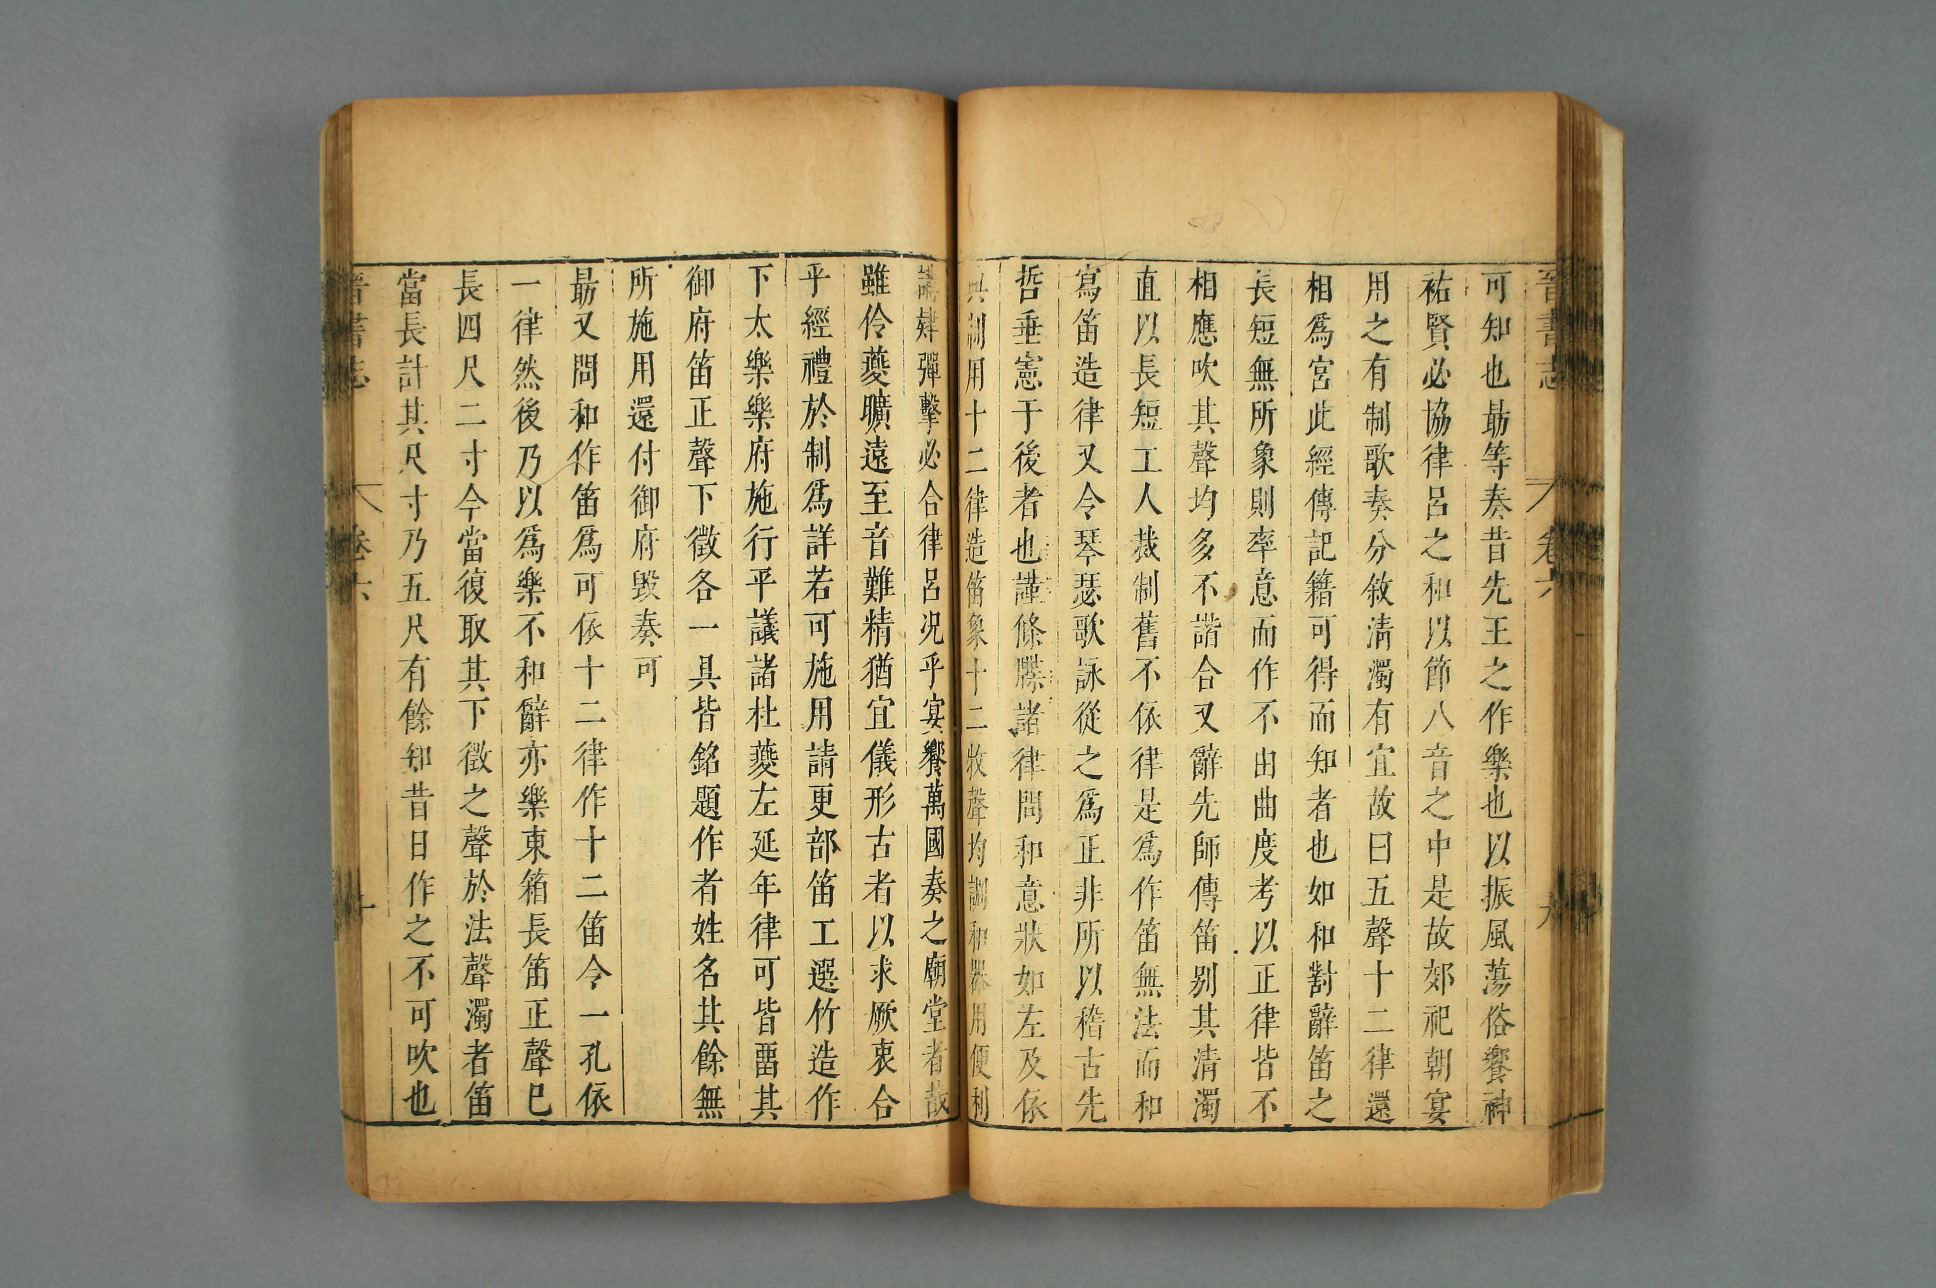 晉書志 卷六 九
可知也勗等奏昔先王之作樂也以振風蕩俗饗神
祐賢必協律呂之和以節八音之中是故郊祀朝宴
用之有制歌奏分敘清濁有宜故曰五聲十二律還
相爲宮此經傳記籍可得而知者也如和對辭笛之
長短無所象則率意而作不由曲度考以正律皆不
相應吹其聲均多不諧合又辭先師傳笛别其清濁
直以長短工人裁制舊不依律是爲作笛無法而和
寫笛造律又令琴瑟歌詠從之爲正非所以稽古先
哲垂憲于後者也謹條牒諸律問和意狀如左及依
典制用十二律造笛象十二牧聲均調和器用便利
講肄彈擊必合律呂况乎宴饗萬國奏之廟堂者哉
雖伶夔曠遠至音難精猶宜儀形古者以求厥衷合
乎經禮於制爲詳若可施用請更部笛工選竹造作
下太樂樂府施行平議諸杜夔左延年律可皆畱其
御府笛正聲下徵各一具皆銘題作者姓名其餘無
所施用還付御府毀奏可
勗又問和作笛爲可依十二律作十二笛令一孔依
一律然後乃以爲樂不和辭亦樂東箱長笛正聲巳
長四尺二寸今當復取其下徵之聲於法聲濁者笛
當長計其尺寸乃五尺有餘知昔日作之不可吹也
晉書志 卷六 十